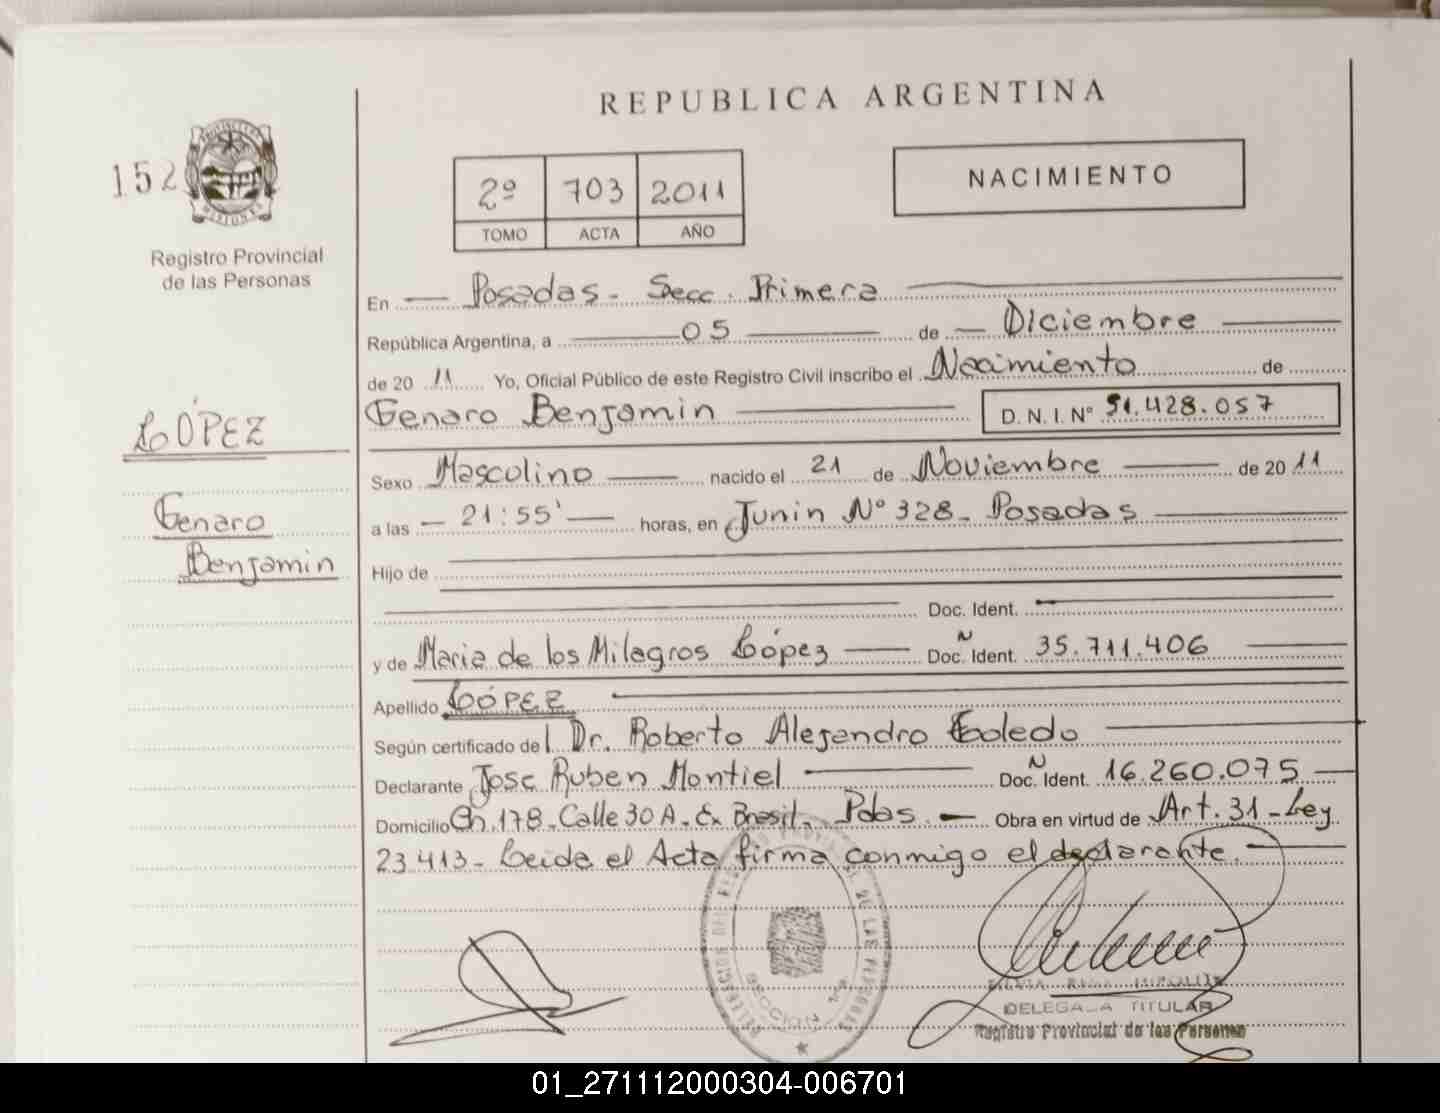 REPUBLICA ARGENTINA
152
2º 703 2011
TOMO ACTA AÑO
NACIMIENTO
Registro Provincial
de las Personas
En Posadas - Secc. Primera
República Argentina, a 05 de Diciembre
de 20 11 Yo, Oficial Público de este Registro Civil inscribo el Nacimiento de
Genaro Benjamin D. N. I. Nº 51.428.057
LÓPEZ
Genaro
Benjamin
Sexo Masculino nacido el 21 de Noviembre de 20 11
a las 21:55' horas, en Junin Nº 328 - Posadas
Hijo de
Doc. Ident.
y de Maria de los Milagros López Doc. Ident. 35.711.406
Apellido LÓPEZ
Según certificado del Dr. Roberto Alejandro Toledo
Declarante Jose Ruben Montiel Doc. Ident. 16.260.075
Domicilio Ch. 178 - Calle 30 A - Ex Brasil - Pdas. Obra en virtud de Art. 31 - Ley
23413 - Leida el Acta firma conmigo el declarante.
SECCION 1ra
DELEGADA TITULAR
Registro Provincial de las Personas
01_271112000304-006701